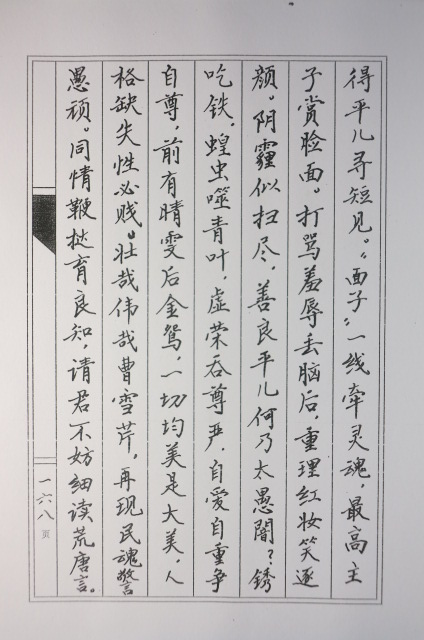 得平儿寻短见。“面子”一线牵灵魂，最高主
子赏脸面。打骂羞辱丢脑后，重理红妆笑逐
颜。阴霾似扫尽，善良平儿何乃太愚闇？锈
吃铁，蝗虫噬青叶，虚荣吞尊严，自爱自重争
自尊，前有晴雯后金鸳，一切均美是大美，人
格缺失性必贱。壮哉伟哉曹雪芹，再现民魂警
愚顽。同情鞭挞育良知，请君不妨细读荒唐言。
一六八页